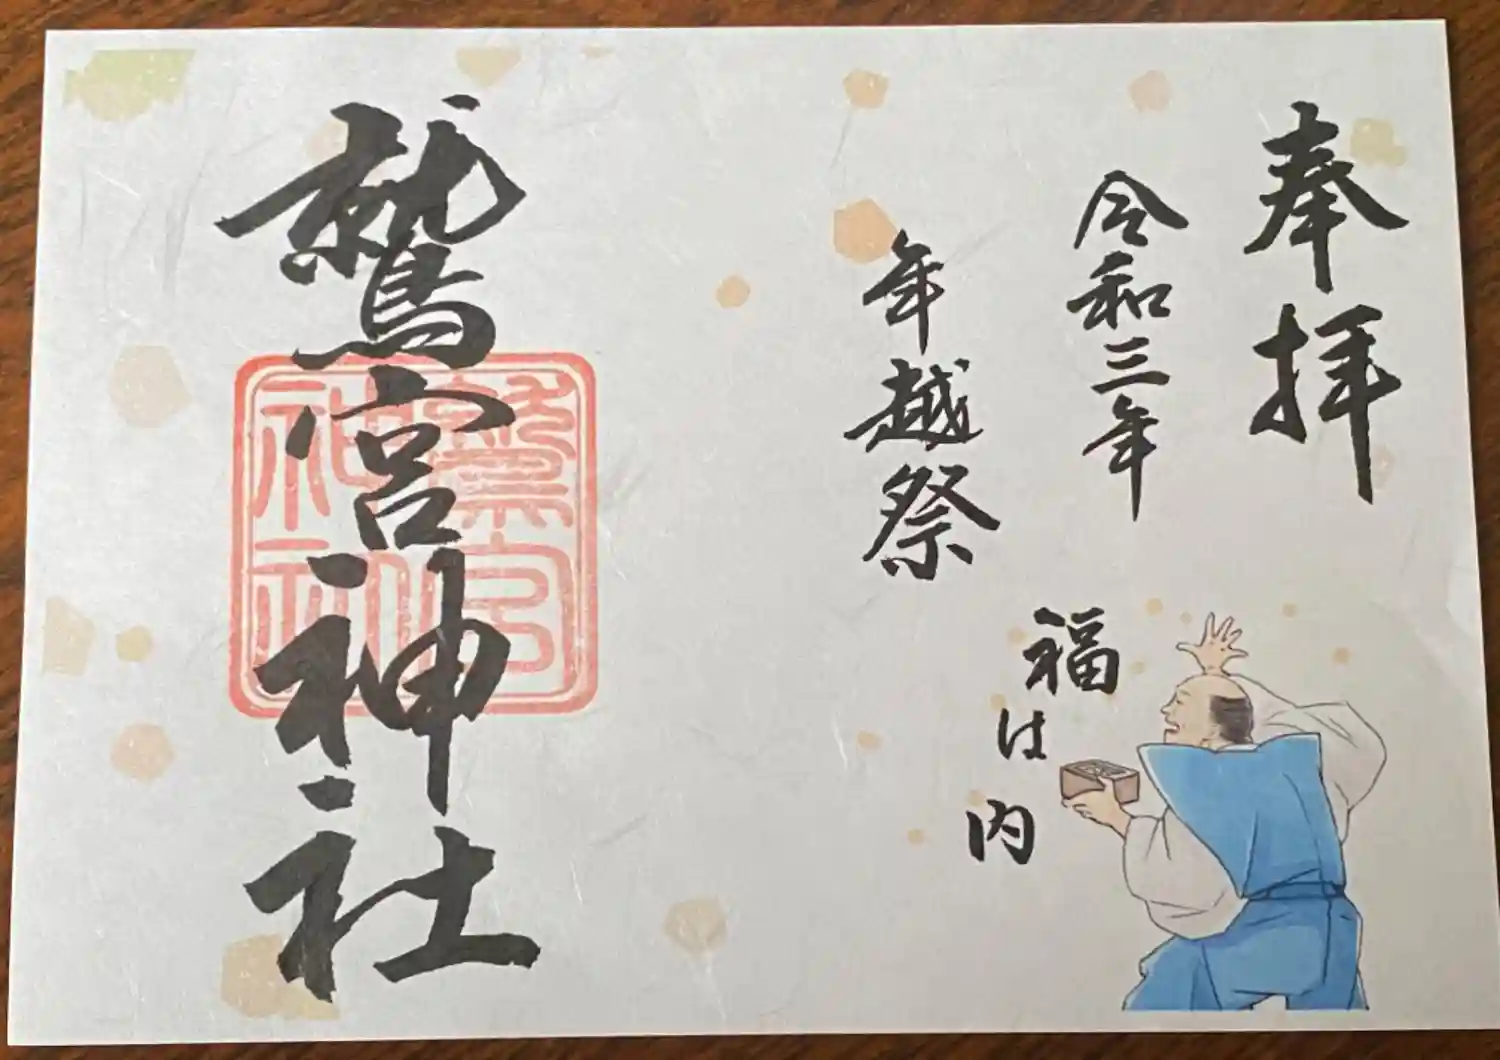 奉拝
令和三年
年越祭
福は内
鷲宮神社
鷲宮神社